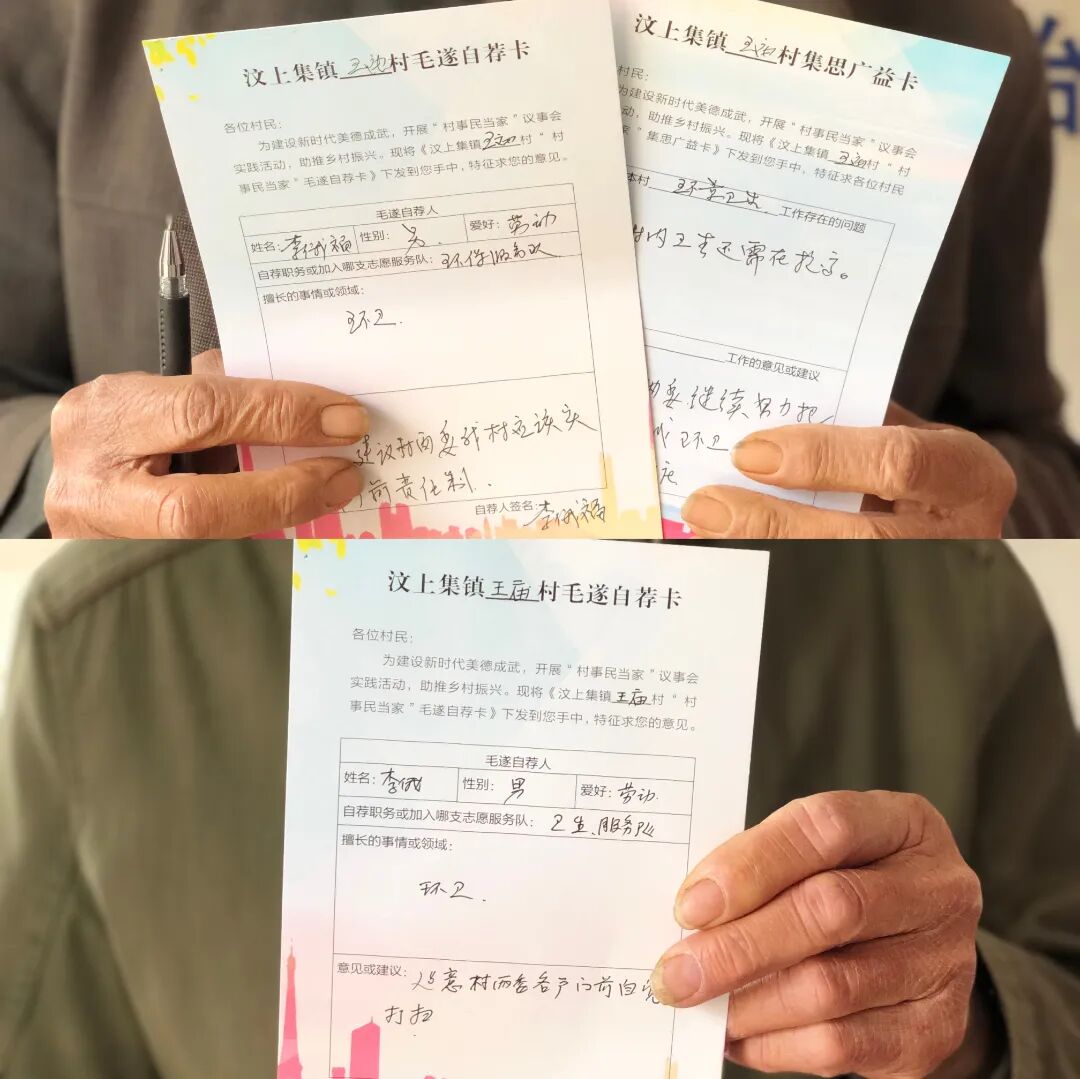 汶上集镇王庙村毛遂自荐卡
各位村民：
为建设新时代美德成武，开展“村事民当家”议事会
实践活动，助推乡村振兴。现将《汶上集镇王庙村“村
事民当家”毛遂自荐卡》下发到您手中，特征求您的意见。
毛遂自荐人
姓名：李俄福 性别：男. 爱好：劳动
自荐职务或加入哪支志愿服务队：环保服务队
擅长的事情或领域：
环卫.
建议村两委我村应该实
前责任制.
自荐人签名：李俄福
汶上集镇王庙村集思广益卡
村民：
为建设新时代美德成武，开展“村事民当家”议事会
动，助推乡村振兴。现将《汶上集镇王庙村“村
家”集思广益卡》下发到您手中，特征求各位村民
本村环境卫生.工作存在的问题
村内卫生还需在提高。
工作的意见或建议
两委继续努力把
环卫
治
汶上集镇王庙村毛遂自荐卡
各位村民：
为建设新时代美德成武，开展“村事民当家”议事会
实践活动，助推乡村振兴。现将《汶上集镇王庙村“村
事民当家”毛遂自荐卡》下发到您手中，特征求您的意见。
毛遂自荐人
姓名：李俄 性别：男 爱好：劳动.
自荐职务或加入哪支志愿服务队：卫生.服务队
擅长的事情或领域：
环卫.
意见或建议：村两委各户门前自
打扫